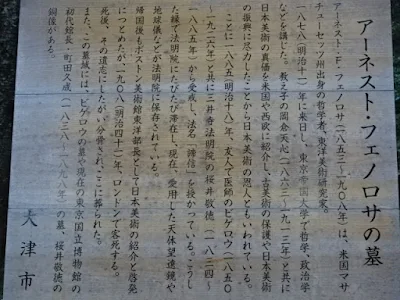 アーネスト・フェノロサの墓
アーネスト・F・フェノロサ(一八五三~一九〇八年)は、米国マサ
チューセッツ州出身の哲学者、東洋美術研究家。
一八七八(明治十一)年に来日し、東京帝国大学で哲学、政治学
などを講じた。教え子の岡倉天心(一八六二~一九一三年)と共に
日本美術の真価を米国や西欧に紹介し、古美術の保護や日本美術
の振興に尽力したことから日本美術の恩人ともいわれている。
ここに一八八五(明治十八)年、友人で医師のビゲロウ(一八五〇
~一九二六年)と共に三井寺法明院の桜井敬徳(一八三四~
一八八五年)から受戒し、法名「諦信」を授かっている。こうし
た縁で法明院にたびたび滞在し、現在、愛用した天体望遠鏡や
地球儀などが法明院に保存されている。
帰国後もボストン美術館東洋部長として日本美術の紹介と啓発
につとめたが、一九〇八(明治四十一)年、ロンドンで客死する。
死後、その遺志にしたがい分骨され、ここに葬られた。
また、この墓域には、ビゲロウの墓や現在の東京国立博物館の
初代館長・町田久成(一八三八~一八九八年)の墓、桜井敬徳の
銅像がある。
大津市